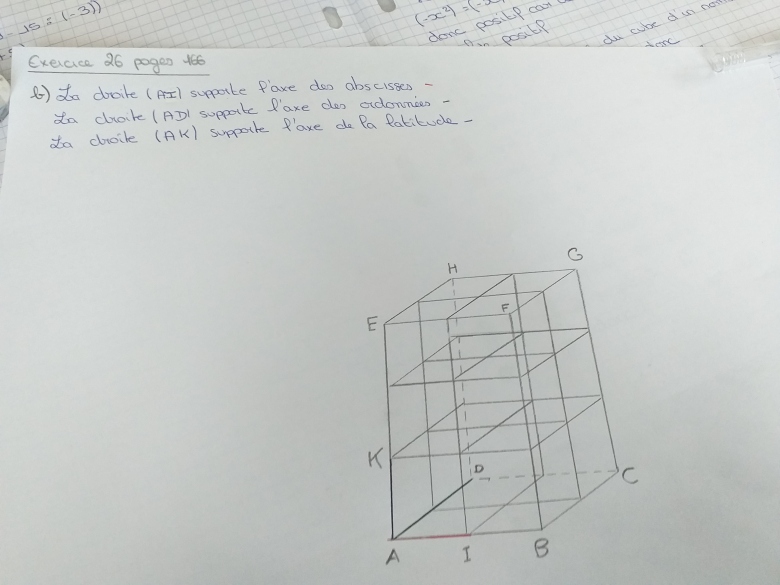 -15 = (-3))
donc positif car
positif
du cube d'un nom
donc
Exercice 26 pages 166
b) La droite (AI) supporte l'axe des abscisses -
La droite (AD) supporte l'axe des ordonnées -
La droite (AK) supporte l'axe de la latitude -
H
G
E
F
K
D
C
A
I
B